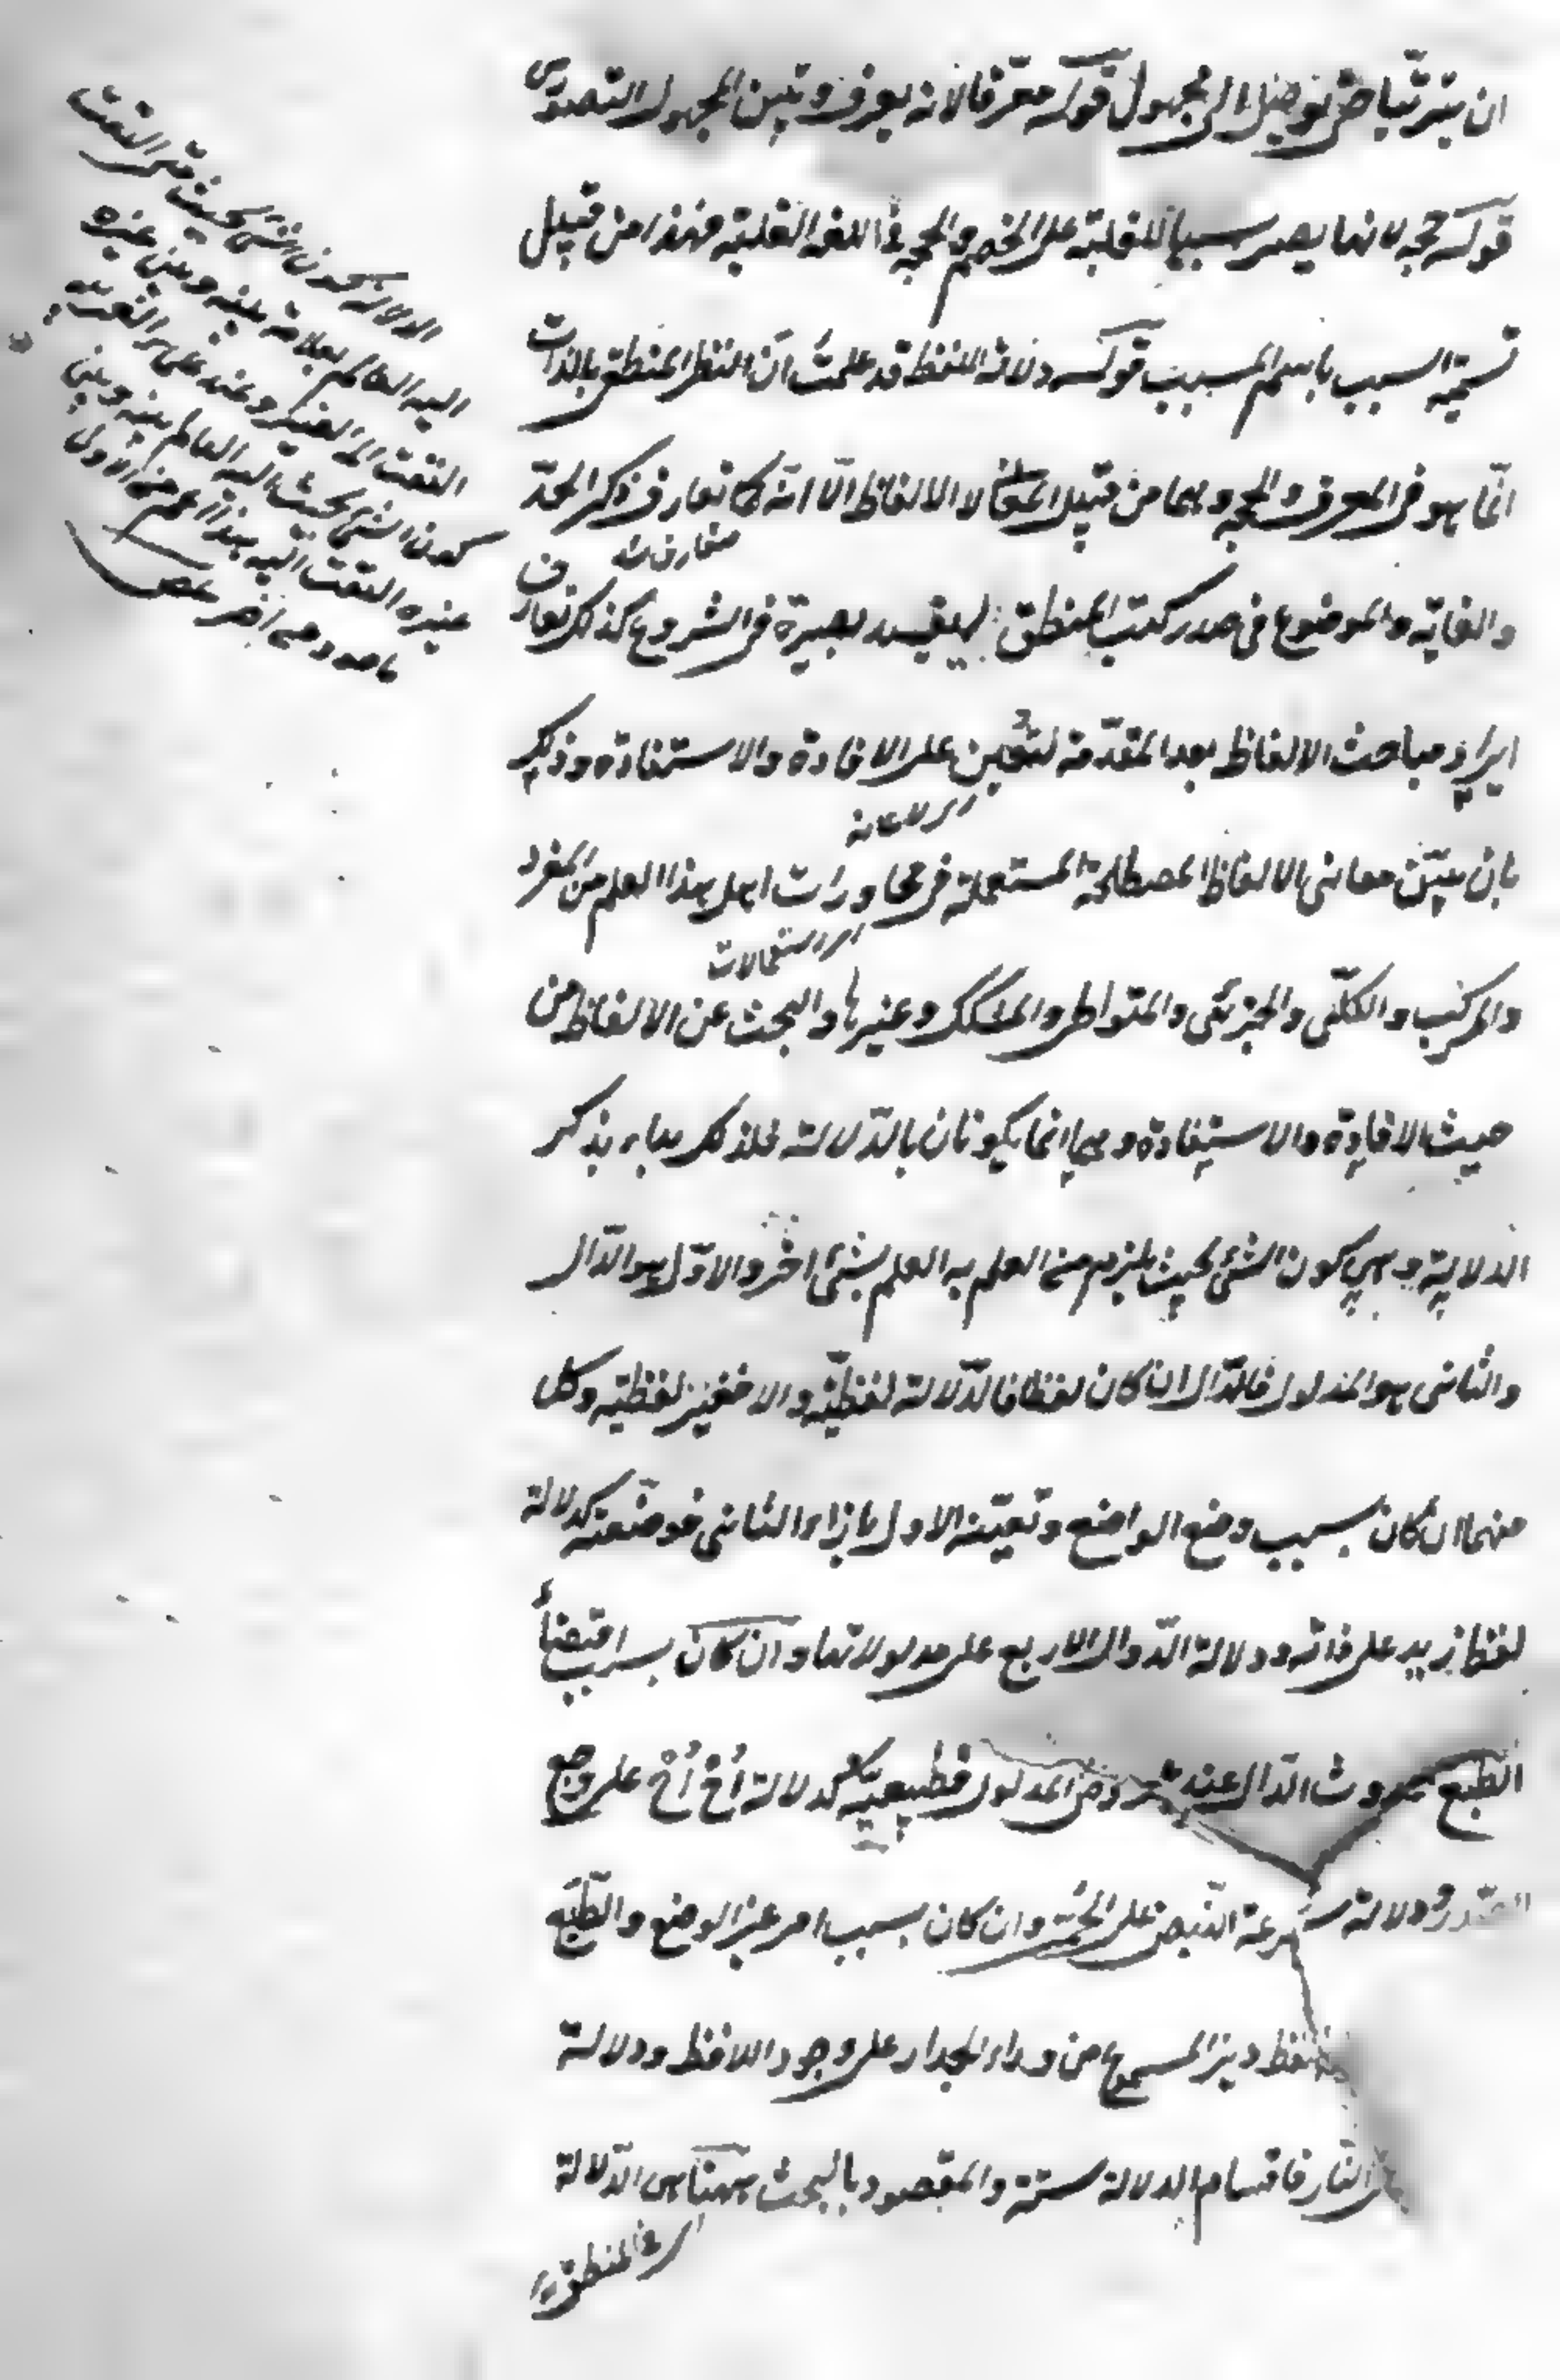 ان يترتبا حتى يوصل الى مجهول قوله معرفا لانه يعرف و يبين المجهول التصوري
قوله حجة لانها يصير سببا للغلبة على الخصم و الحجة في اللغة الغلبة فهذا من قبيل
تسمية السبب باسم المسبب قوله دلالة اللفظ قد علمت ان النظر المنطقي بالذات
انما هو في المعرف و الحجة و هما من قبيل المعاني لا الالفاظ الا انه كما تعارف ذكر الحد
و الغاية و الموضوع في صدر كتب المنطق ليفيد بصيرة في الشروع كذلك تعارف
ايراد مباحث الالفاظ بعد المقدمة لتعين على الافادة و الاستفادة و ذلك
بان يبين معاني الالفاظ المصطلحة المستعملة في محاورات اهل هذا العلم من المفرد
اي استعمالات
و المركب و الكلي و الجزئي و المتواطي و المشكك و غيرها و البحث عن الالفاظ من
حيث الافادة و الاستفادة و هما انما يكونان بالدلالة فلذلك بداء بذكر
الدلالة و هي كون الشئ بحيث يلزم من العلم به العلم بشئ اخر و الاول هو الدال
و الثاني هو المدلول فالدال ان كان لفظا فالدلالة لفظية و الا فغير لفظية و كل
منهما ان كان بسبب وضع الواضع و تعيينه الاول بازاء الثاني فوضعية كدلالة
لفظ زيد على ذاته و دلالة الدوال الاربع على مدلولاتها و ان كان بسبب اقتضاء
الطبع حدوث الدال عند عروض المدلول فطبيعية كدلالة أخ أخ على وجع
الصدر و دلالة سرعة النبض على الحمى و ان كان بسبب امر غير الوضع و الطبع
لفظ ديز المسموع من وراء الجدار على وجود اللافظ و دلالة
النار فاقسام الدلالة ستة و المقصود بالبحث ههنا هي الدلالة
اي في المنطق
الدلالة كون الشئ بحيث متى التفت
اليه العالم بعلاقة بينه و بين غيره
التفت الى الغير و عند
كون الشئ بحيث اليه العالم بينه و بين
غيره التفت اليه هذا اعم من الاول